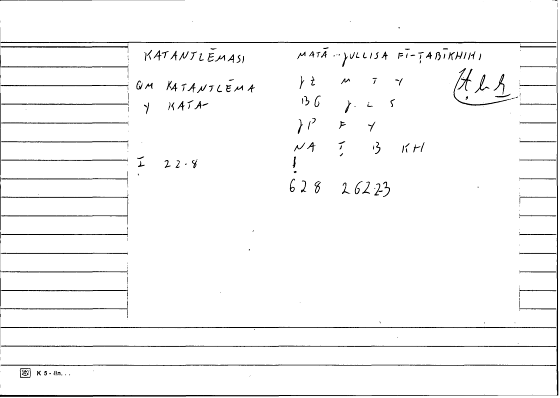 KATANTLĒMASI MATĀ-YULLISA FĪ-ṬABĪKHIHI
QM KATANTLĒMA YZ M T Y
Y KATA- BG Y L S
YP F Y
NA Ṭ B KH
I 22.8 !
628 26223
K 5 -